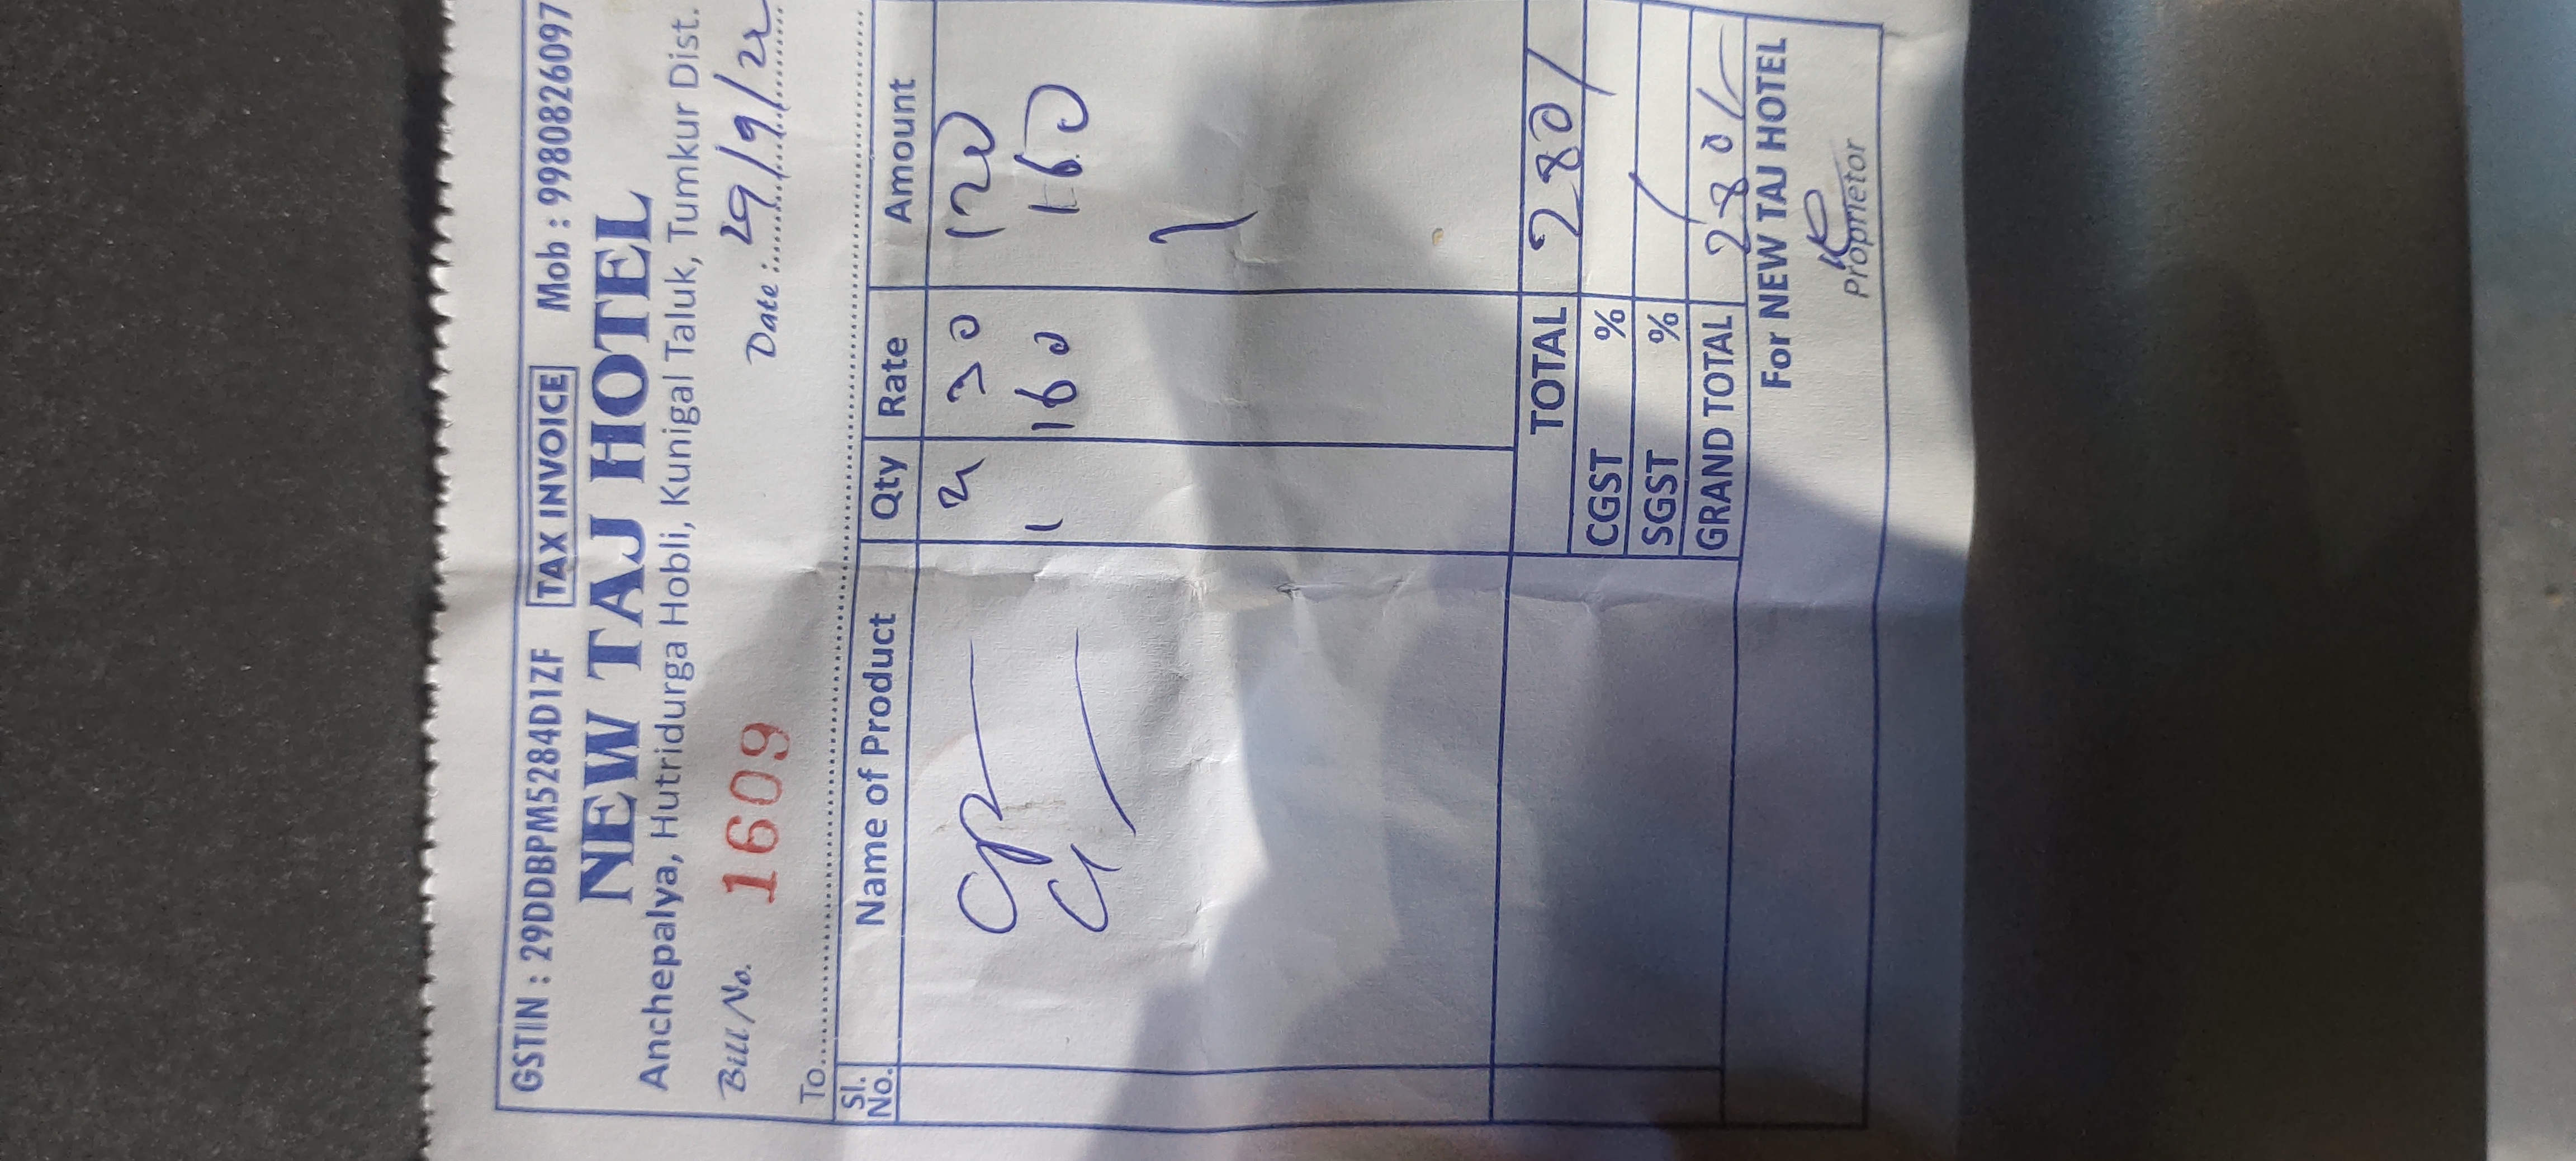 GSTIN : 29DDBPM5284D1ZF TAX INVOICE Mob : 9980826097
NEW TAJ HOTEL
Anchepalya, Hutridurga Hobli, Kunigal Taluk, Tumkur Dist.
Bill No. 1609 Date : 29/9/22
To
Sl. No. Name of Product Qty Rate Amount
CP 4 30 120
1 160 160
TOTAL 280/
CGST %
SGST %
GRAND TOTAL 280/-
For NEW TAJ HOTEL
Proprietor